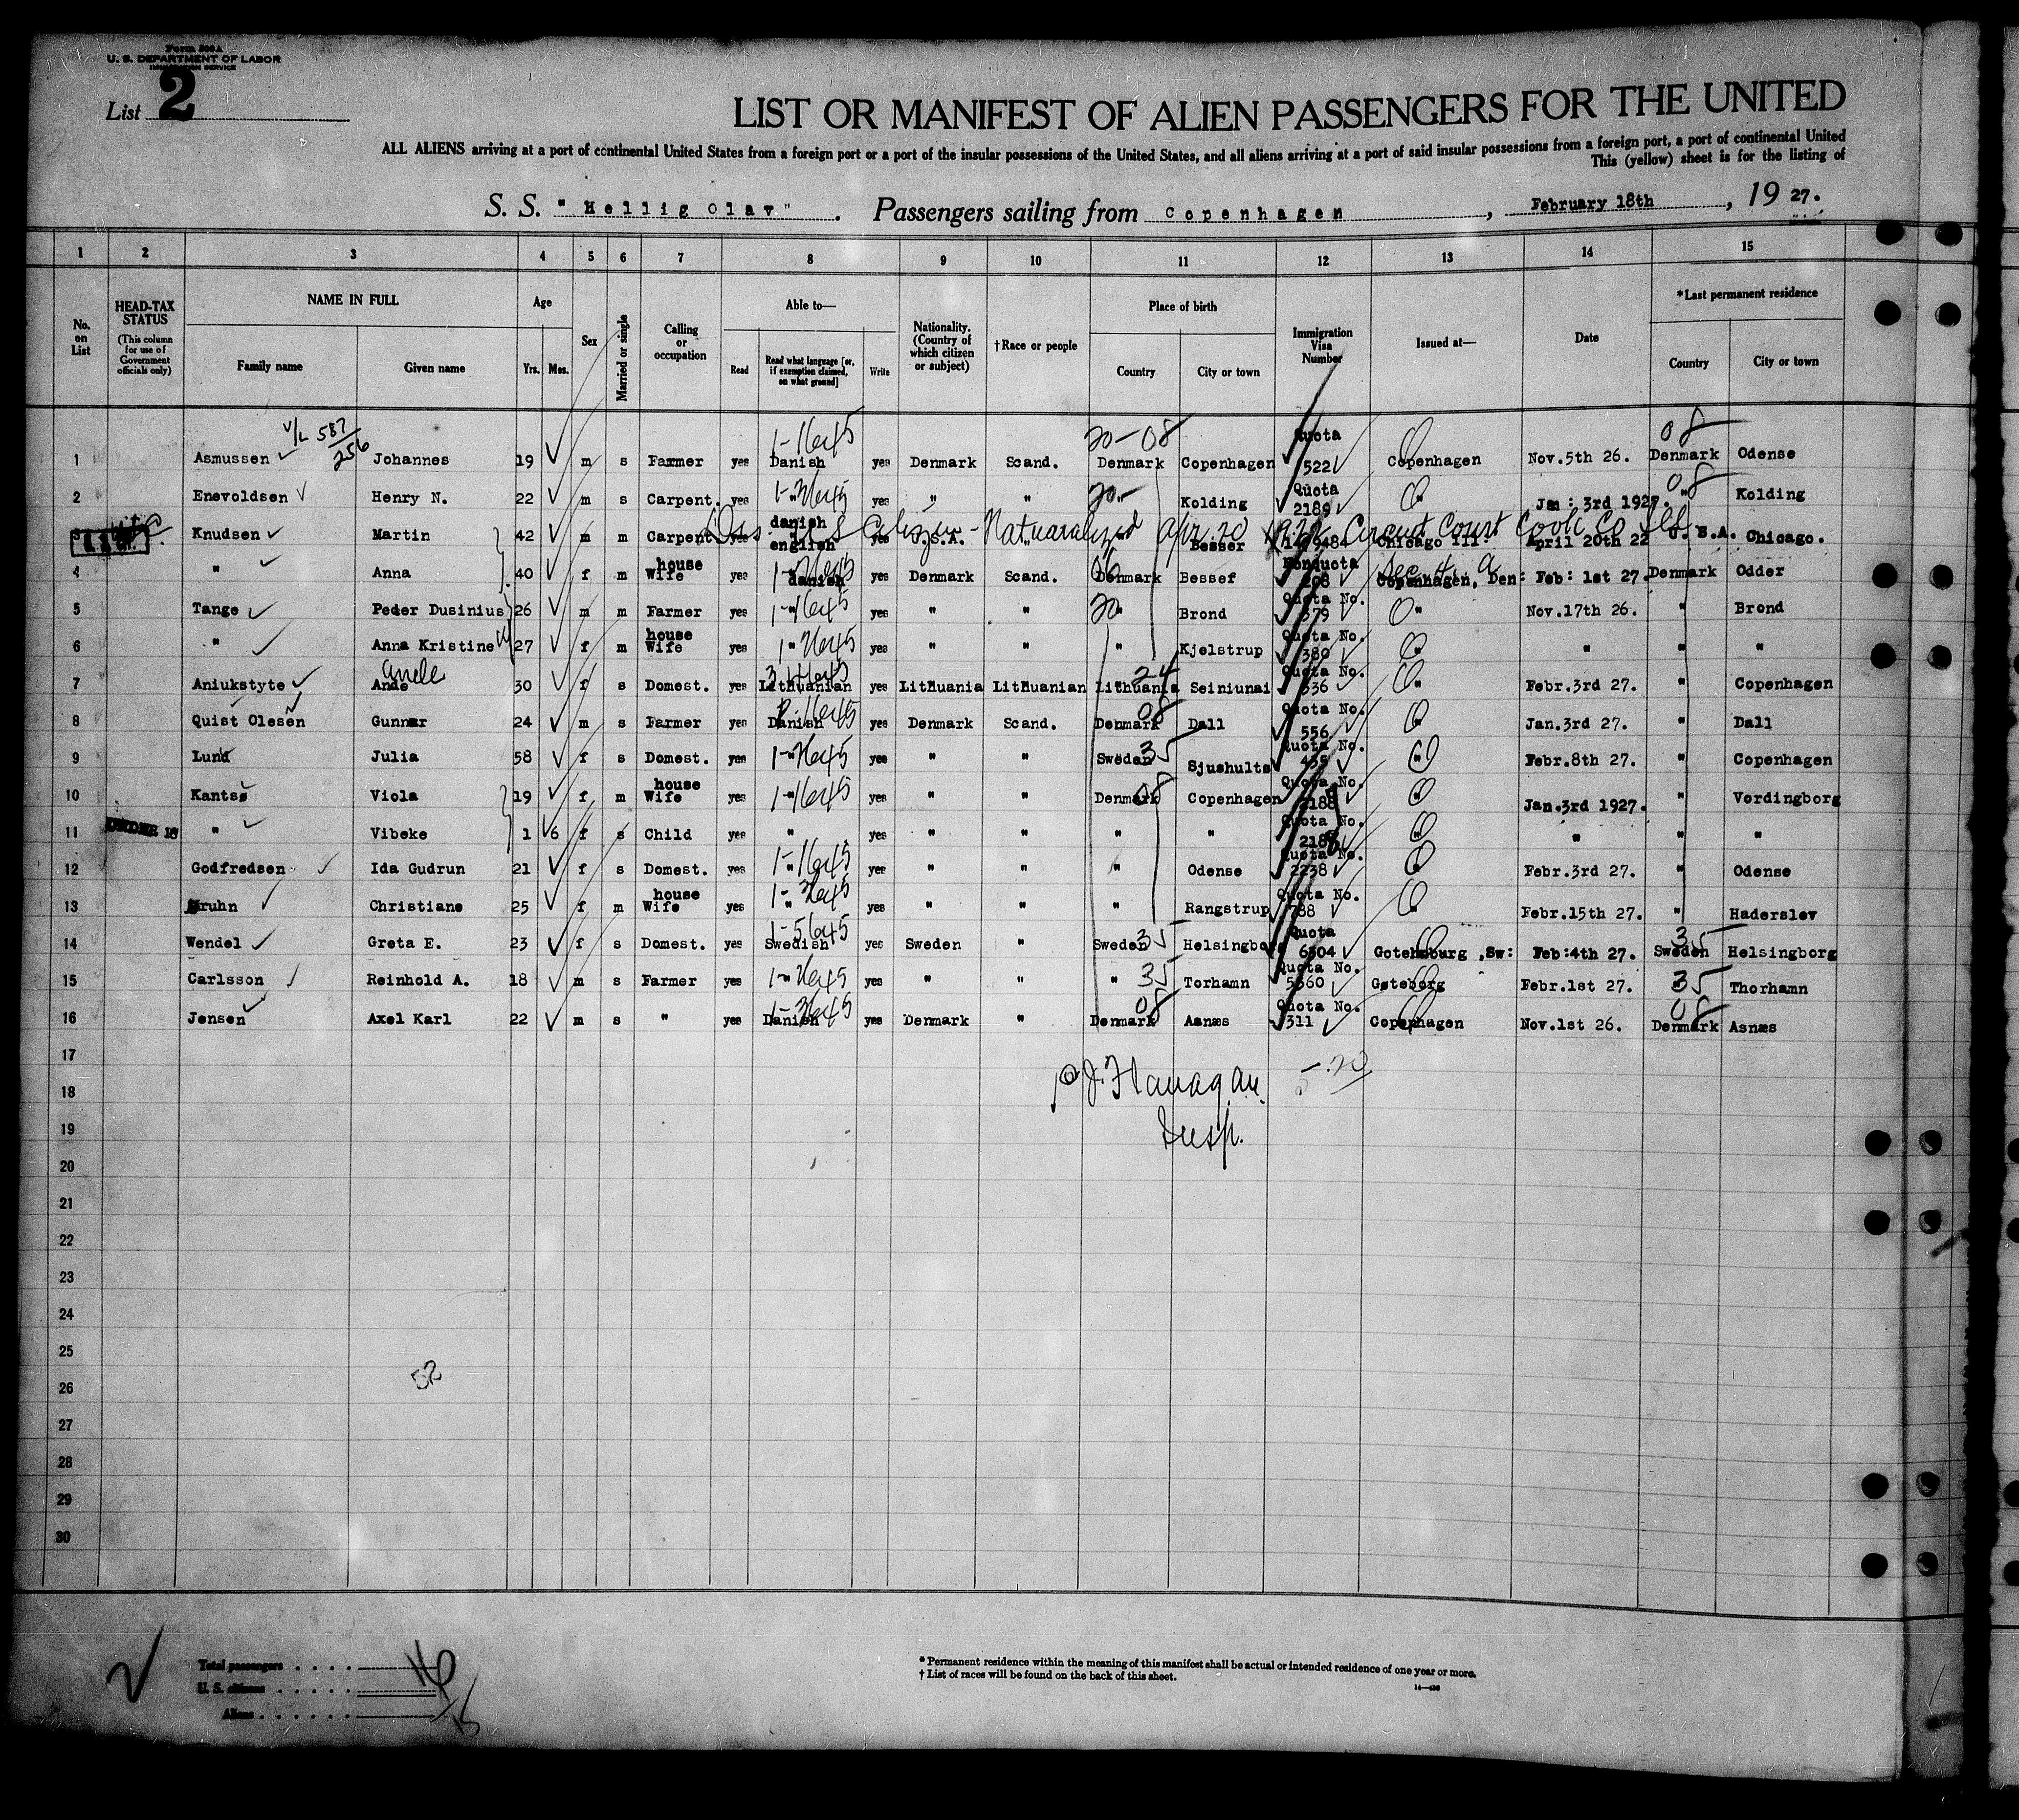 Form 500A
U. S. DEPARTMENT OF LABOR
IMMIGRATION SERVICE
List 2
LIST OR MANIFEST OF ALIEN PASSENGERS FOR THE UNITED
ALL ALIENS arriving at a port of continental United States from a foreign port or a port of the insular possessions of the United States, and all aliens arriving at a port of said insular possessions from a foreign port, a port of continental United
This (yellow) sheet is for the listing of
S. S. "Hellig Olav". Passengers sailing from Copenhagen, February 18th, 19 27.
1 2 3 4 5 6 7 8 9 10 11 12 13 14 15
No. on List
HEAD-TAX STATUS (This column for use of Government officials only)
NAME IN FULL Family name Given name
Age Yrs. Mos.
Sex
Married or single
Calling or occupation
Able to— Read Read what language [or, if exemption claimed, on what ground] Write
Nationality. (Country of which citizen or subject)
†Race or people
Place of birth Country City or town
Immigration Visa Number
Issued at—
Date
*Last permanent residence Country City or town
V/L 587/256
1 Asmussen Johannes 19 m s Farmer yes Danish yes Denmark Scand. 20-08 Denmark Copenhagen Quota 522 Copenhagen Nov.5th 26. 08 Denmark Odense
2 Enevoldsen Henry N. 22 m s Carpent. yes " yes " " 20- " Kolding Quota 2189 " Jan: 3rd 1927. 08 " Kolding
3 Knudsen Martin 42 m m Carpent yes danish english yes U.S.A. " " Besser Chicago Ill. April 20th 22 U.S.A. Chicago.
U S Citizen - Natuaralized Apr. 20 1922 Circuit Court Cook Co Ill.
4 " Anna 40 f m house Wife yes danish yes Denmark Scand. Denmark Bessef Nonquota 208 Copenhagen, Den: Feb: 1st 27. Denmark Odder
5 Tange Peder Dusinius 26 m m Farmer yes " yes " " 20 " Brond Quota No. 379 " Nov.17th 26. " Brond
6 " Anna Kristine 27 f m house Wife yes " yes " " " Kjelstrup Quota No. 380 " " " "
Anele
7 Aniukstyte Ande 30 f s Domest. yes Lithuanian yes Lithuania Lithuanian 24 Lithuania Seiniunai Quota No. 336 " Febr.3rd 27. " Copenhagen
8 Quist Olesen Gunnar 24 m s Farmer yes Danish yes Denmark Scand. 08 Denmark Dall Quota No. 556 " Jan.3rd 27. " Dall
9 Lund Julia 58 f s Domest. yes " yes " " 35 Sweden Sjushults Quota No. 435 " Febr.8th 27. " Copenhagen
10 Kantsø Viola 19 f m house Wife yes " yes " " 08 Denmark Copenhagen Quota No. 2188 " Jan.3rd 1927. " Vordingborg
UNDER 16
11 " Vibeke 1 6 f s Child yes " yes " " " " Quota No. " " " "
12 Godfredsen Ida Gudrun 21 f s Domest. yes " yes " " " Odense Quota No. 2238 " Febr.3rd 27. " Odense
13 Gruhn Christiane 25 f m house Wife yes " yes " " " Rangstrup Quota No. 788 " Febr.15th 27. " Haderslev
14 Wendel Greta E. 23 f s Domest. yes Swedish yes Sweden " 35 Sweden Helsingborg Quota 6304 Gotenburg ,Sw: Feb:4th 27. 35 Sweden Helsingborg
15 Carlsson Reinhold A. 18 m s Farmer yes " yes " " 35 " Torhamn Quota No. 5360 Gøteborg Febr.1st 27. 35 " Thorhamn
16 Jensen Axel Karl 22 m s " yes Danish yes Denmark " 08 Denmark Asnæs Quota No. 311 Copenhagen Nov.1st 26. 08 Denmark Asnæs
17
18 J. Flanagan
19 Insp.
20
21
22
23
24
25
26 52
27
28
29
30
Total passengers . . . . 16
U. S. citizens . . . . .
Aliens . . . . . . 15
* Permanent residence within the meaning of this manifest shall be actual or intended residence of one year or more.
† List of races will be found on the back of this sheet.